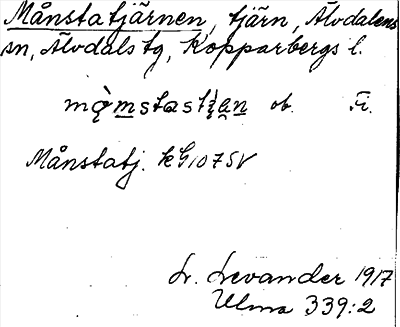 Månstatjärnen, tjärn, Älvdalens
sn, Älvdals tg, Kopparbergs l.
ob. Fi.
Månstatj. kG107SV
L. Levander 1917
Ulma 339:2